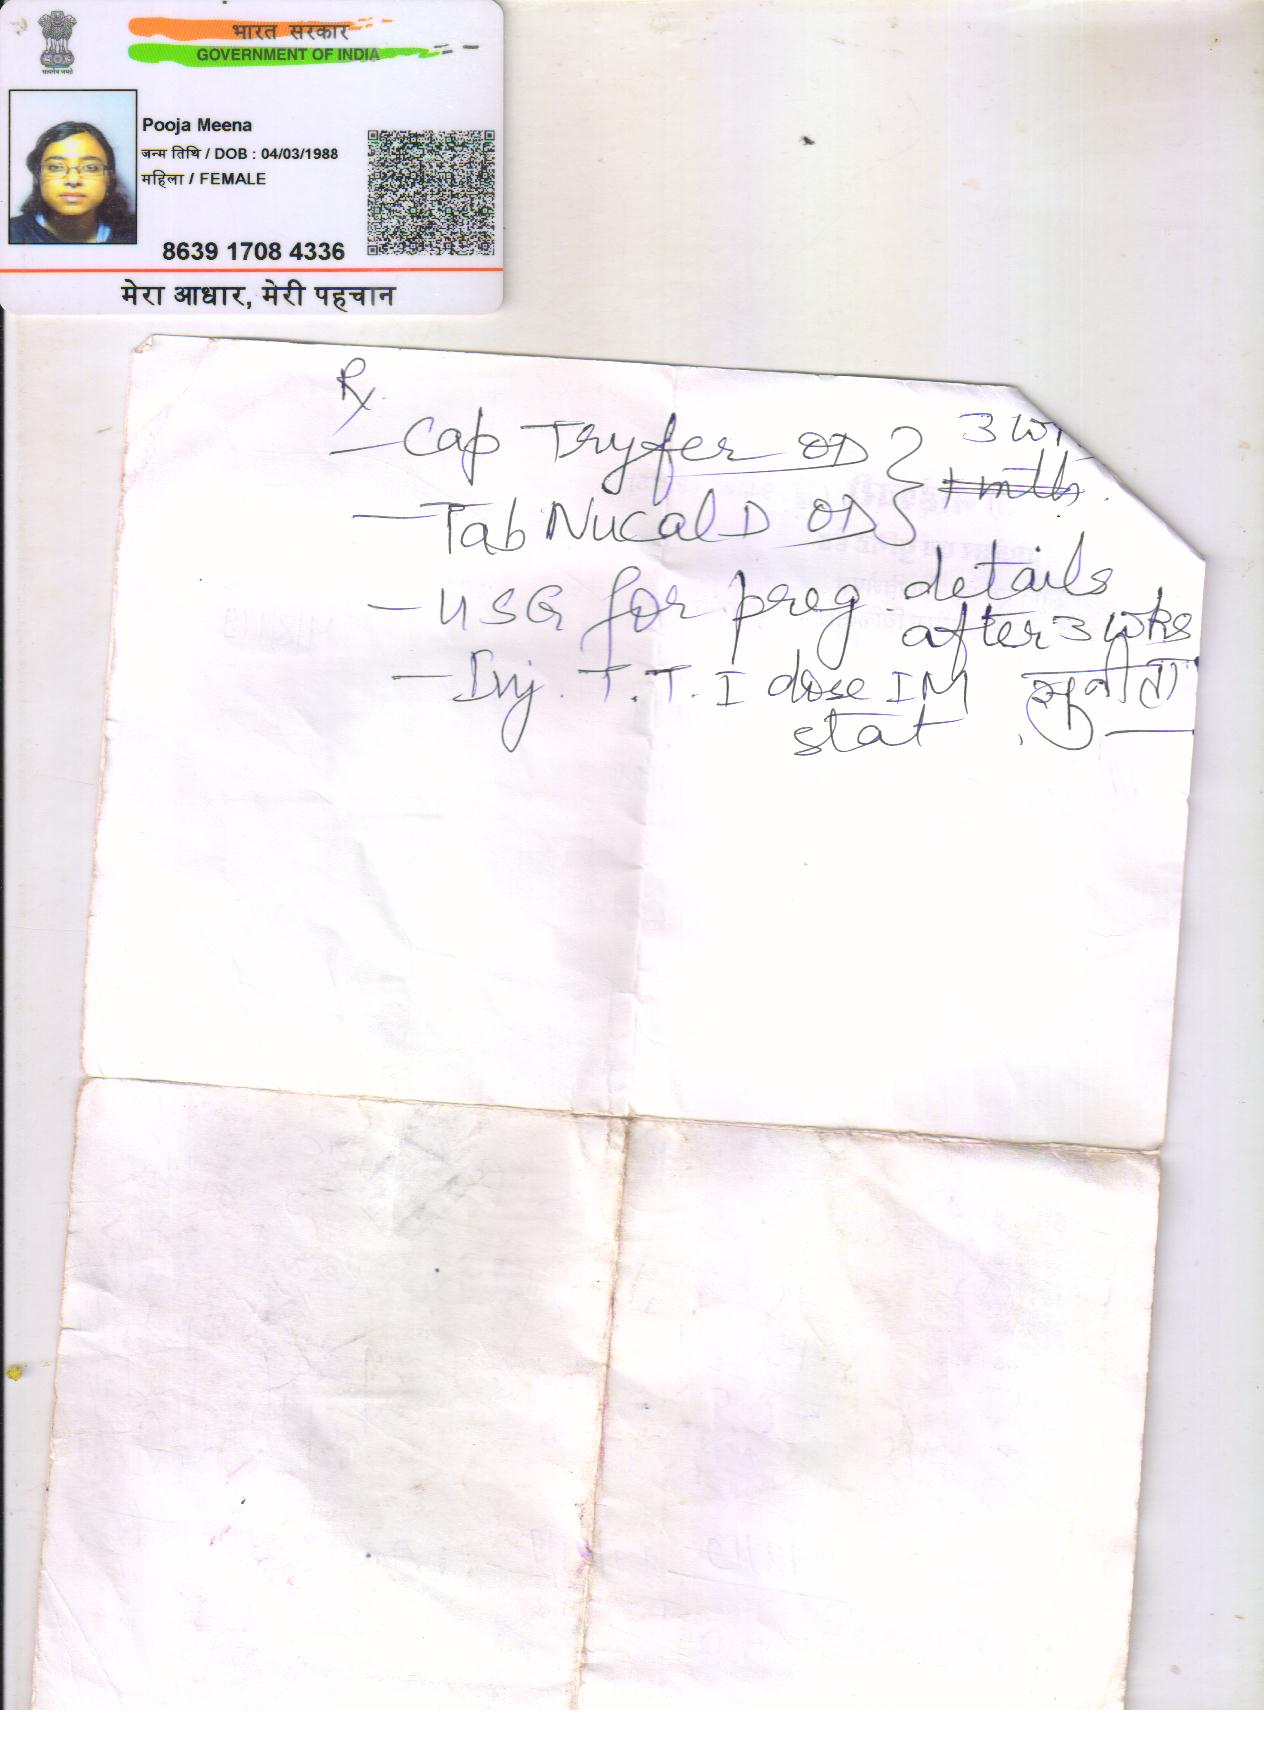 भारत सरकार
GOVERNMENT OF INDIA
सत्यमेव जयते
Pooja Meena
जन्म तिथि / DOB : 04/03/1988
महिला / FEMALE
8639 1708 4336
मेरा आधार, मेरी पहचान
Rx
- Cap Tryfer OD } 3 w
1 mth.
- Tab Nucal D OD
- USG for preg. details
after 3 wks
- Inj. T.T. I dose IM
stat. सुनीता